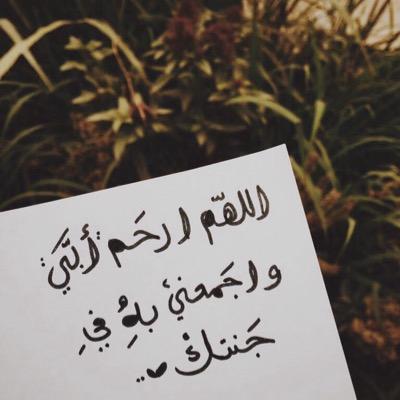 اللهّم ارحَم "أبَّيَ"
واجَمعنيَ بهِۂ فيِ
جَنتكْ ♥..